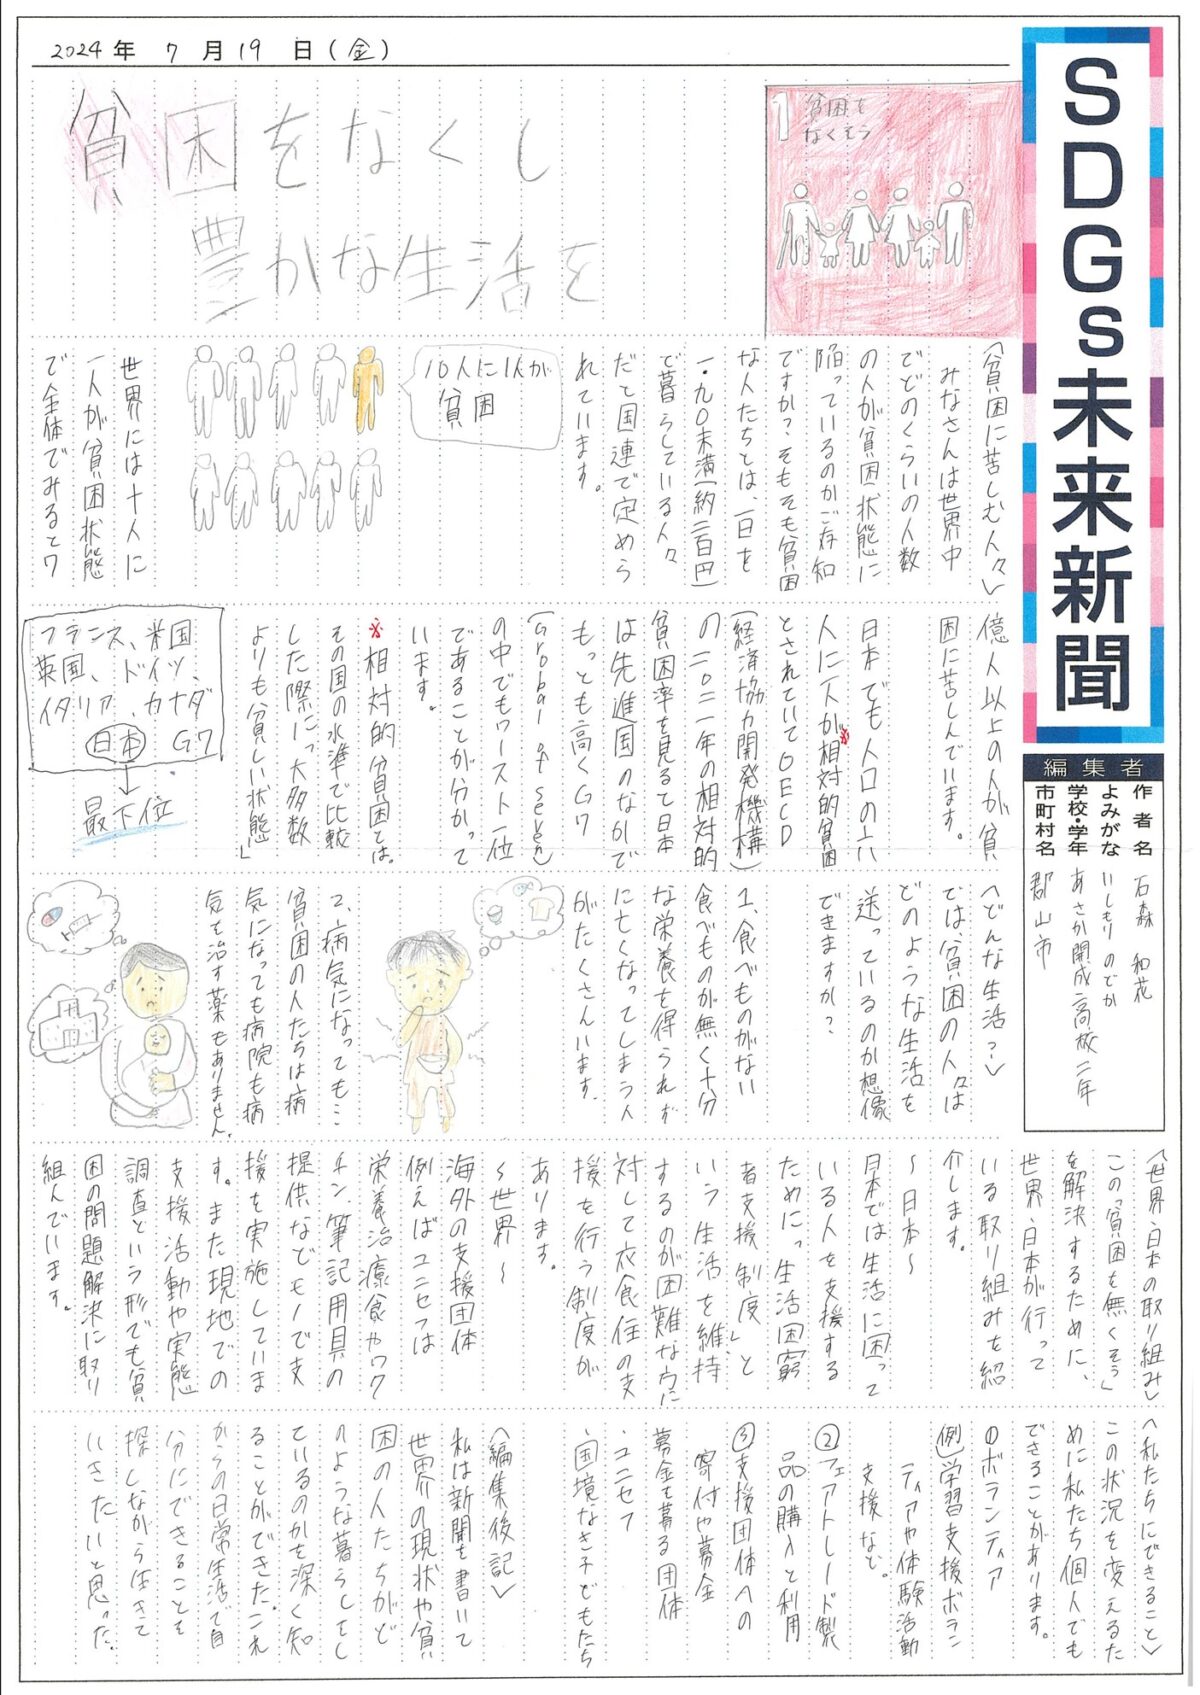 2024年 7月19日(金)
SDGs未来新聞
編集者
作者名 石森 和花
よみがな いしもり のどか
学校・学年 あさか開成高校二年
市町村名 郡山市
1 貧困を
なくそう
貧困をなくし
豊かな生活を
〈貧困に苦しむ人々〉
みなさんは世界中
でどのくらいの人数
の人が貧困状態に
陥っているのかご存知
ですか?そもそも貧困
な人たちとは、一日を
一・九〇未満(約二百円)
で暮らしている人々
だと国連で定めら
れています。
10人に1人が
貧困
世界には十人に
一人が貧困状態
で全体でみると7
億人以上の人が貧
困に苦しんでいます。
日本でも人口の六
人に一人が※相対的貧困
とされていてOECD
(経済協力開発機構)
の二〇二一年の相対的
貧困率を見るて日本
は先進国のなかで
もっとも高くG7
(Grobal of seven)
の中でもワースト一位
であることが分かって
います。
※相対的貧困とは。
その国の水準で比較
した際に「大多数
よりも貧しい状態」
フランス、米国
英国、ドイツ、
イタリア、カナダ
日本 G7
最下位
〈どんな生活?〉
では貧困の人々は
どのような生活を
送っているのか想像
できますか?
1、食べものがない
食べものが無く十分
な栄養を得られず
に亡くなってしまう人
がたくさんいます。
2、病気になっても…
貧困の人たちは病
気になっても病院も病
気を治す薬もありません。
〈世界・日本の取り組み〉
この「貧困を無くそう」
を解決するために、
世界・日本が行って
いる取り組みを紹
介します。
〜日本〜
日本では生活に困って
いる人を支援する
ために「生活困窮
者支援制度」と
いう生活を維持
するのが困難な方に
対して衣食住の支
援を行う制度が
あります。
〜世界〜
海外の支援団体
例えばユニセフは
栄養治療食やワク
チン筆記用具の
提供などモノで支
援を実施していま
す。また現地での
支援活動や実態
調査という形でも貧
困の問題解決に取り
組んでいます。
〈私たちにできること〉
この状況を変えるた
めに私たち個人でも
できることがあります。
①ボランティア
(例)学習支援ボラン
ティアや体験活動
支援など。
②フェアトレード製
品の購入と利用
③支援団体への
寄付や募金
募金を募る団体
・ユニセフ
・国境なき子どもたち
〈編集後記〉
私は新聞を書いて
世界の現状や貧
困の人たちがど
のような暮らしをし
ているのかを深く知
ることができた。これ
からの日常生活で自
分にできることを
探しながら生きて
いきたいと思った。